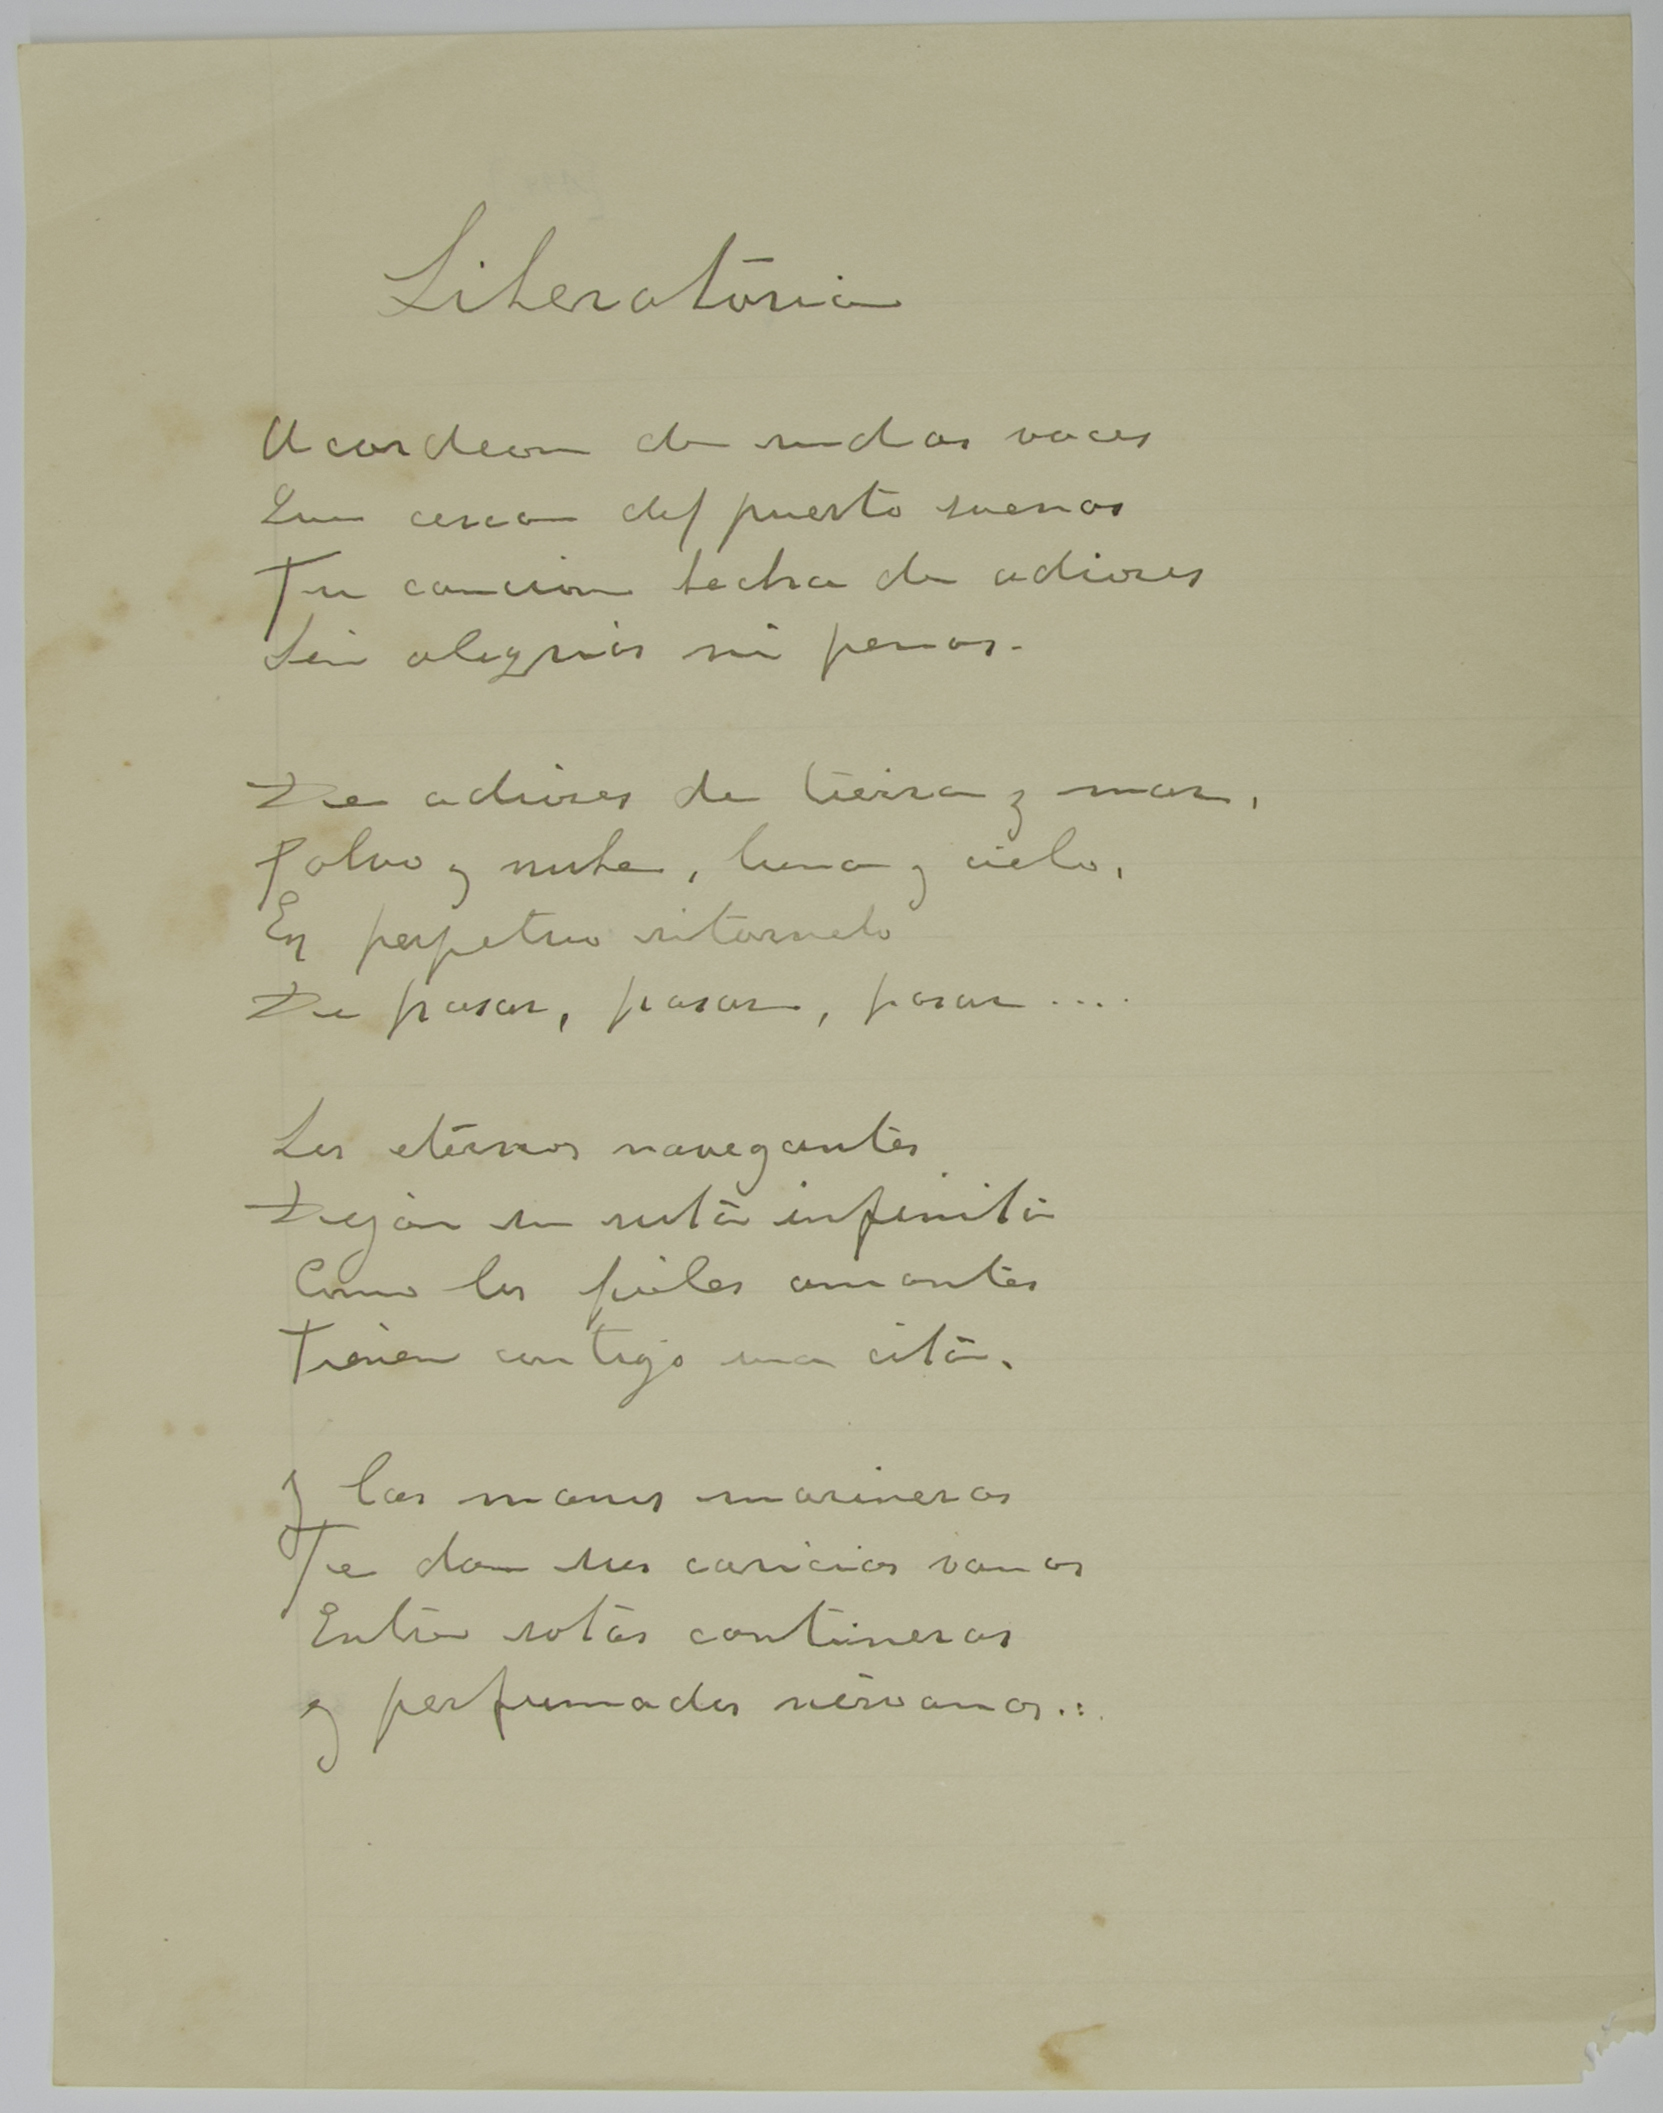 Liberatoria
Acordeon de rudas voces
Que cerca del puerto suenas
Tu cancion hecha de adioses
Sin alegrias ni penas.
De adioses de tierra y mar,
Polvo y nube, luna y cielo,
En perpetuo ritornelo
De pasar, pasar, pasar....
Los eternos navegantes
Dejan su ruta infinita
Como los fieles amantes
Tienen contigo una cita.
Y las manos marineras
Te dan sus caricias vanas
Entre rotas cantineras
y perfumados nirvanas...